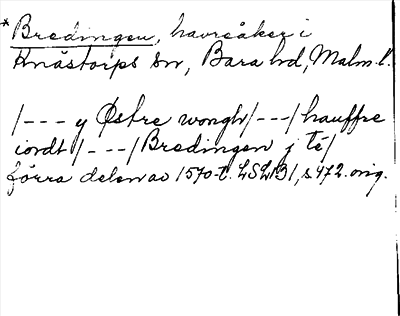 * Bredingen, havreåker i
Knästorps sn, Bara hd, Malm. l.
/--- y Østre wongh/---/hauffre
iordt/---/Bredingen j té/
förra delen av 1570-t. LSLB1, s 472. orig.